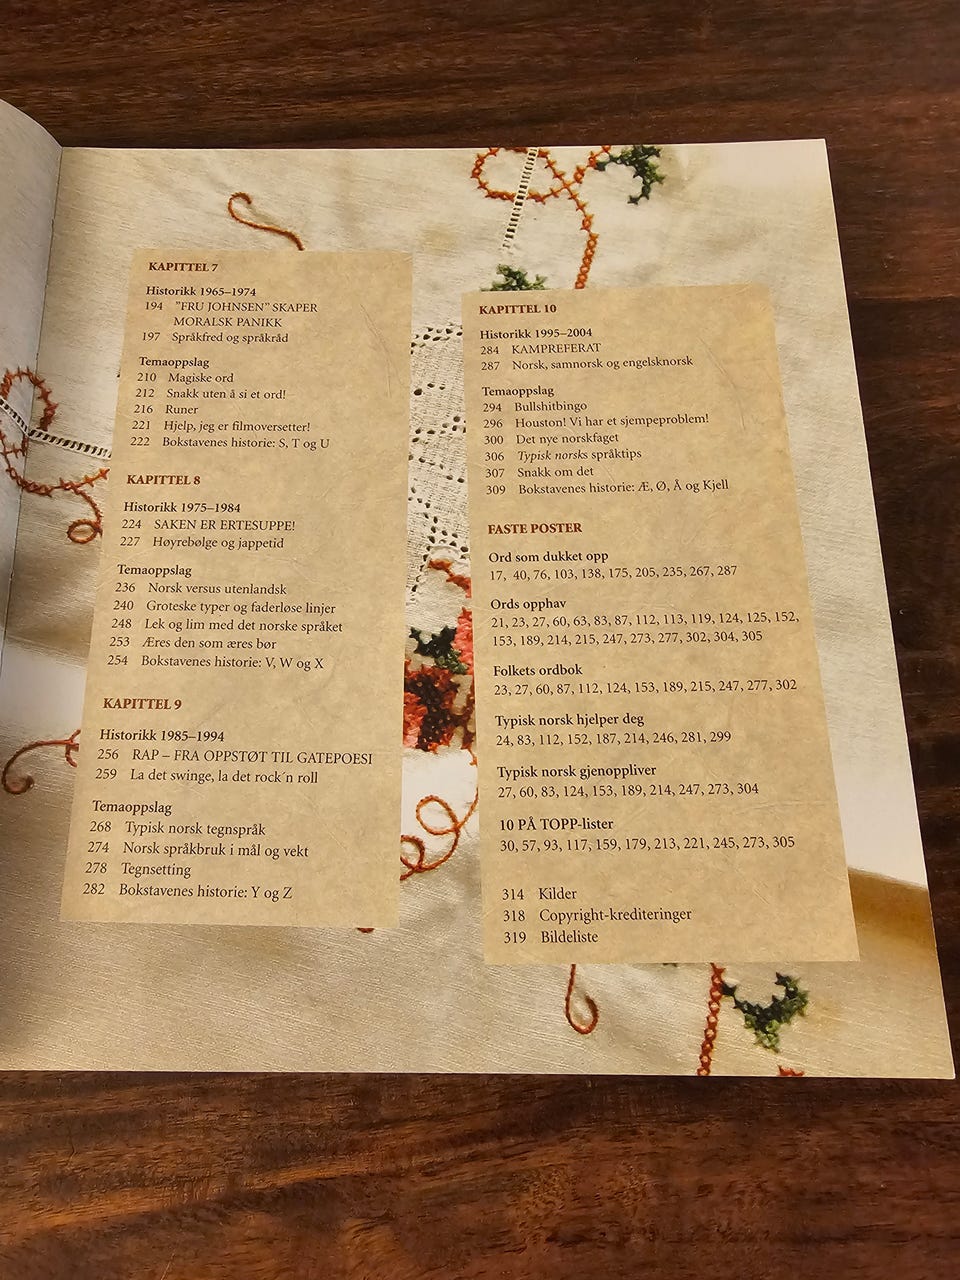 KAPITTEL 7
Historikk 1965–1974
194 ”FRU JOHNSEN” SKAPER
MORALSK PANIKK
197 Språkfred og språkråd
Temaoppslag
210 Magiske ord
212 Snakk uten å si et ord!
216 Runer
221 Hjelp, jeg er filmoversetter!
222 Bokstavenes historie: S, T og U
KAPITTEL 8
Historikk 1975–1984
224 SAKEN ER ERTESUPPE!
227 Høyrebølge og jappetid
Temaoppslag
236 Norsk versus utenlandsk
240 Groteske typer og faderløse linjer
248 Lek og lim med det norske språket
253 Æres den som æres bør
254 Bokstavenes historie: V, W og X
KAPITTEL 9
Historikk 1985–1994
256 RAP – FRA OPPSTØT TIL GATEPOESI
259 La det swinge, la det rock´n roll
Temaoppslag
268 Typisk norsk tegnspråk
274 Norsk språkbruk i mål og vekt
278 Tegnsetting
282 Bokstavenes historie: Y og Z
KAPITTEL 10
Historikk 1995–2004
284 KAMPREFERAT
287 Norsk, samnorsk og engelsknorsk
Temaoppslag
294 Bullshitbingo
296 Houston! Vi har et sjempeproblem!
300 Det nye norskfaget
306 Typisk norsks språktips
307 Snakk om det
309 Bokstavenes historie: Æ, Ø, Å og Kjell
FASTE POSTER
Ord som dukket opp
17, 40, 76, 103, 138, 175, 205, 235, 267, 287
Ords opphav
21, 23, 27, 60, 63, 83, 87, 112, 113, 119, 124, 125, 152,
153, 189, 214, 215, 247, 273, 277, 302, 304, 305
Folkets ordbok
23, 27, 60, 87, 112, 124, 153, 189, 215, 247, 277, 302
Typisk norsk hjelper deg
24, 83, 112, 152, 187, 214, 246, 281, 299
Typisk norsk gjenoppliver
27, 60, 83, 124, 153, 189, 214, 247, 273, 304
10 PÅ TOPP-lister
30, 57, 93, 117, 159, 179, 213, 221, 245, 273, 305
314 Kilder
318 Copyright-krediteringer
319 Bildeliste